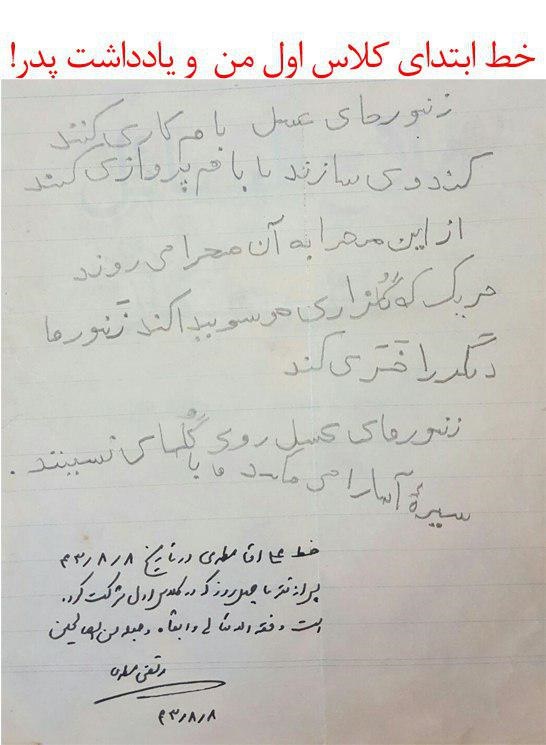 خط ابتدای کلاس اول من و یادداشت پدر!
زنبورهای عسل با هم کاری کنند
کندوی سازند با هم پروازی کنند
از این صحرا به آن صحرا می روند
هر یک که گُلزاری پیدا کند زنبورها
دیگر را خبری کند
زنبورهای عسل روی گُلهای نسینند .
سیرهٔ آنها را می مکند و با
خط علی اقا مطهری در تاریخ ۴۳/۸/۸
پس از تقریبا چهل روز که در کلاس اول شرکت کرد.
است وفقه الله تعالی و ابقاه و جعله من الصالحین
مرتضی مطهری
۴۳/۸/۸